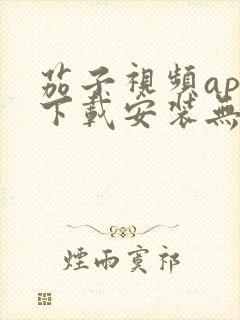 茄子視頻ap
下載安装無
煙雨寞祁